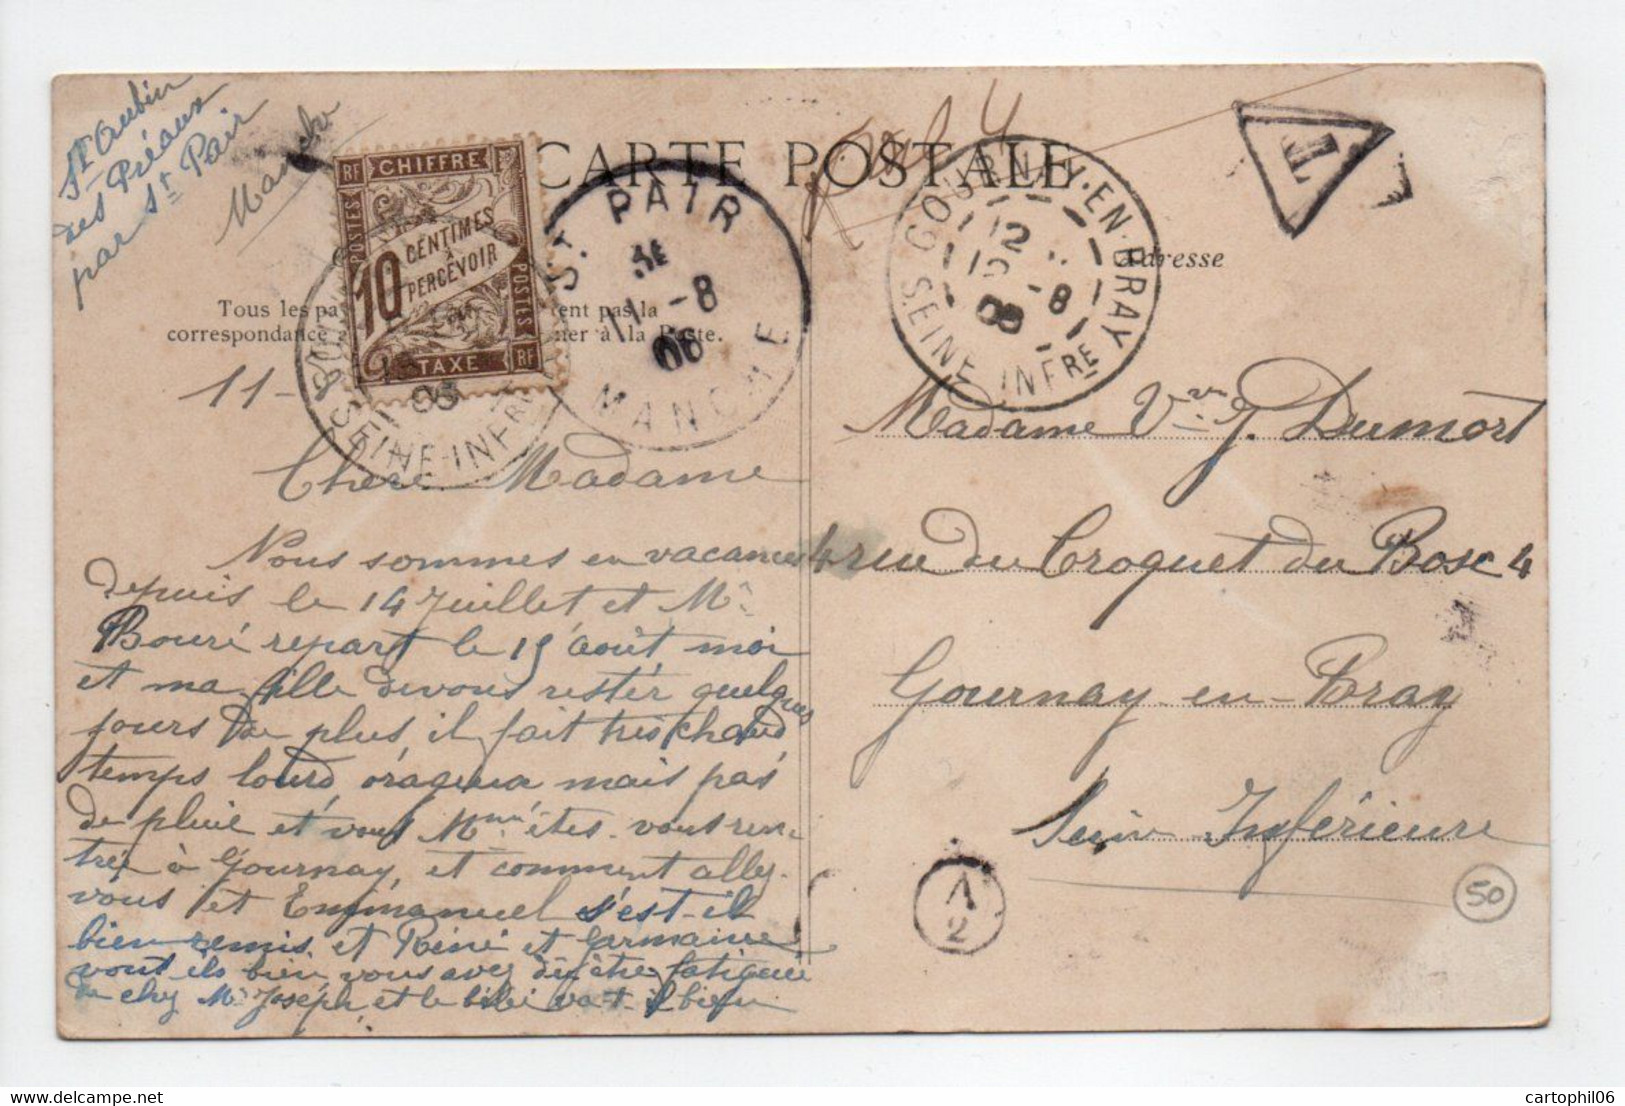 St Aubin
des Préaux
par St Pair
Manche
CARTE POSTALE
RF CHIFFRE RF
POSTES
10 CENTIMES
À
PERCEVOIR
POSTES
TAXE RF
SEINE-INFRE
ST PAIR
11-8
06
MANCHE
GOURNAY-EN-BRAY
12
-8
06
SEINE INFRE
T
Adresse
Tous les pa ent pas la
correspondance er à la Poste.
11-8
Chère Madame
Nous sommes en vacances
depuis le 14 Juillet et Mr
Bouré repart le 15 août moi
et ma fille devons rester quelques
jours de plus, il fait très chaud
temps lourd, orageux mais pas
de pluie et vous Mme êtes-vous ren-
trée à Gournay, et comment allez-
vous et Emmanuel s'est-il
bien remis et Réné et Germaine
vont ils bien, vous avez dû être fatiguée
de chez Mr Joseph, et le bébé va-t-il bien
Madame Vve J. Dumort
4 rue du Croquet du Bosc 4
Gournay-en-Bray
Seine Inférieure
A
2
50
cartophil06